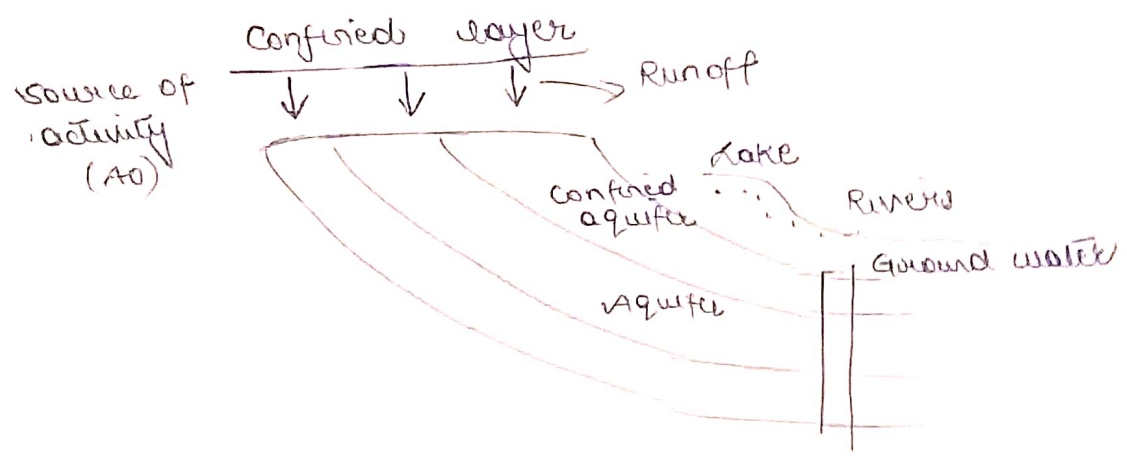 Confined layer
Runoff
source of
activity
(A0)
Lake
Confined
aquifer
Rivers
Ground water
Aquifer